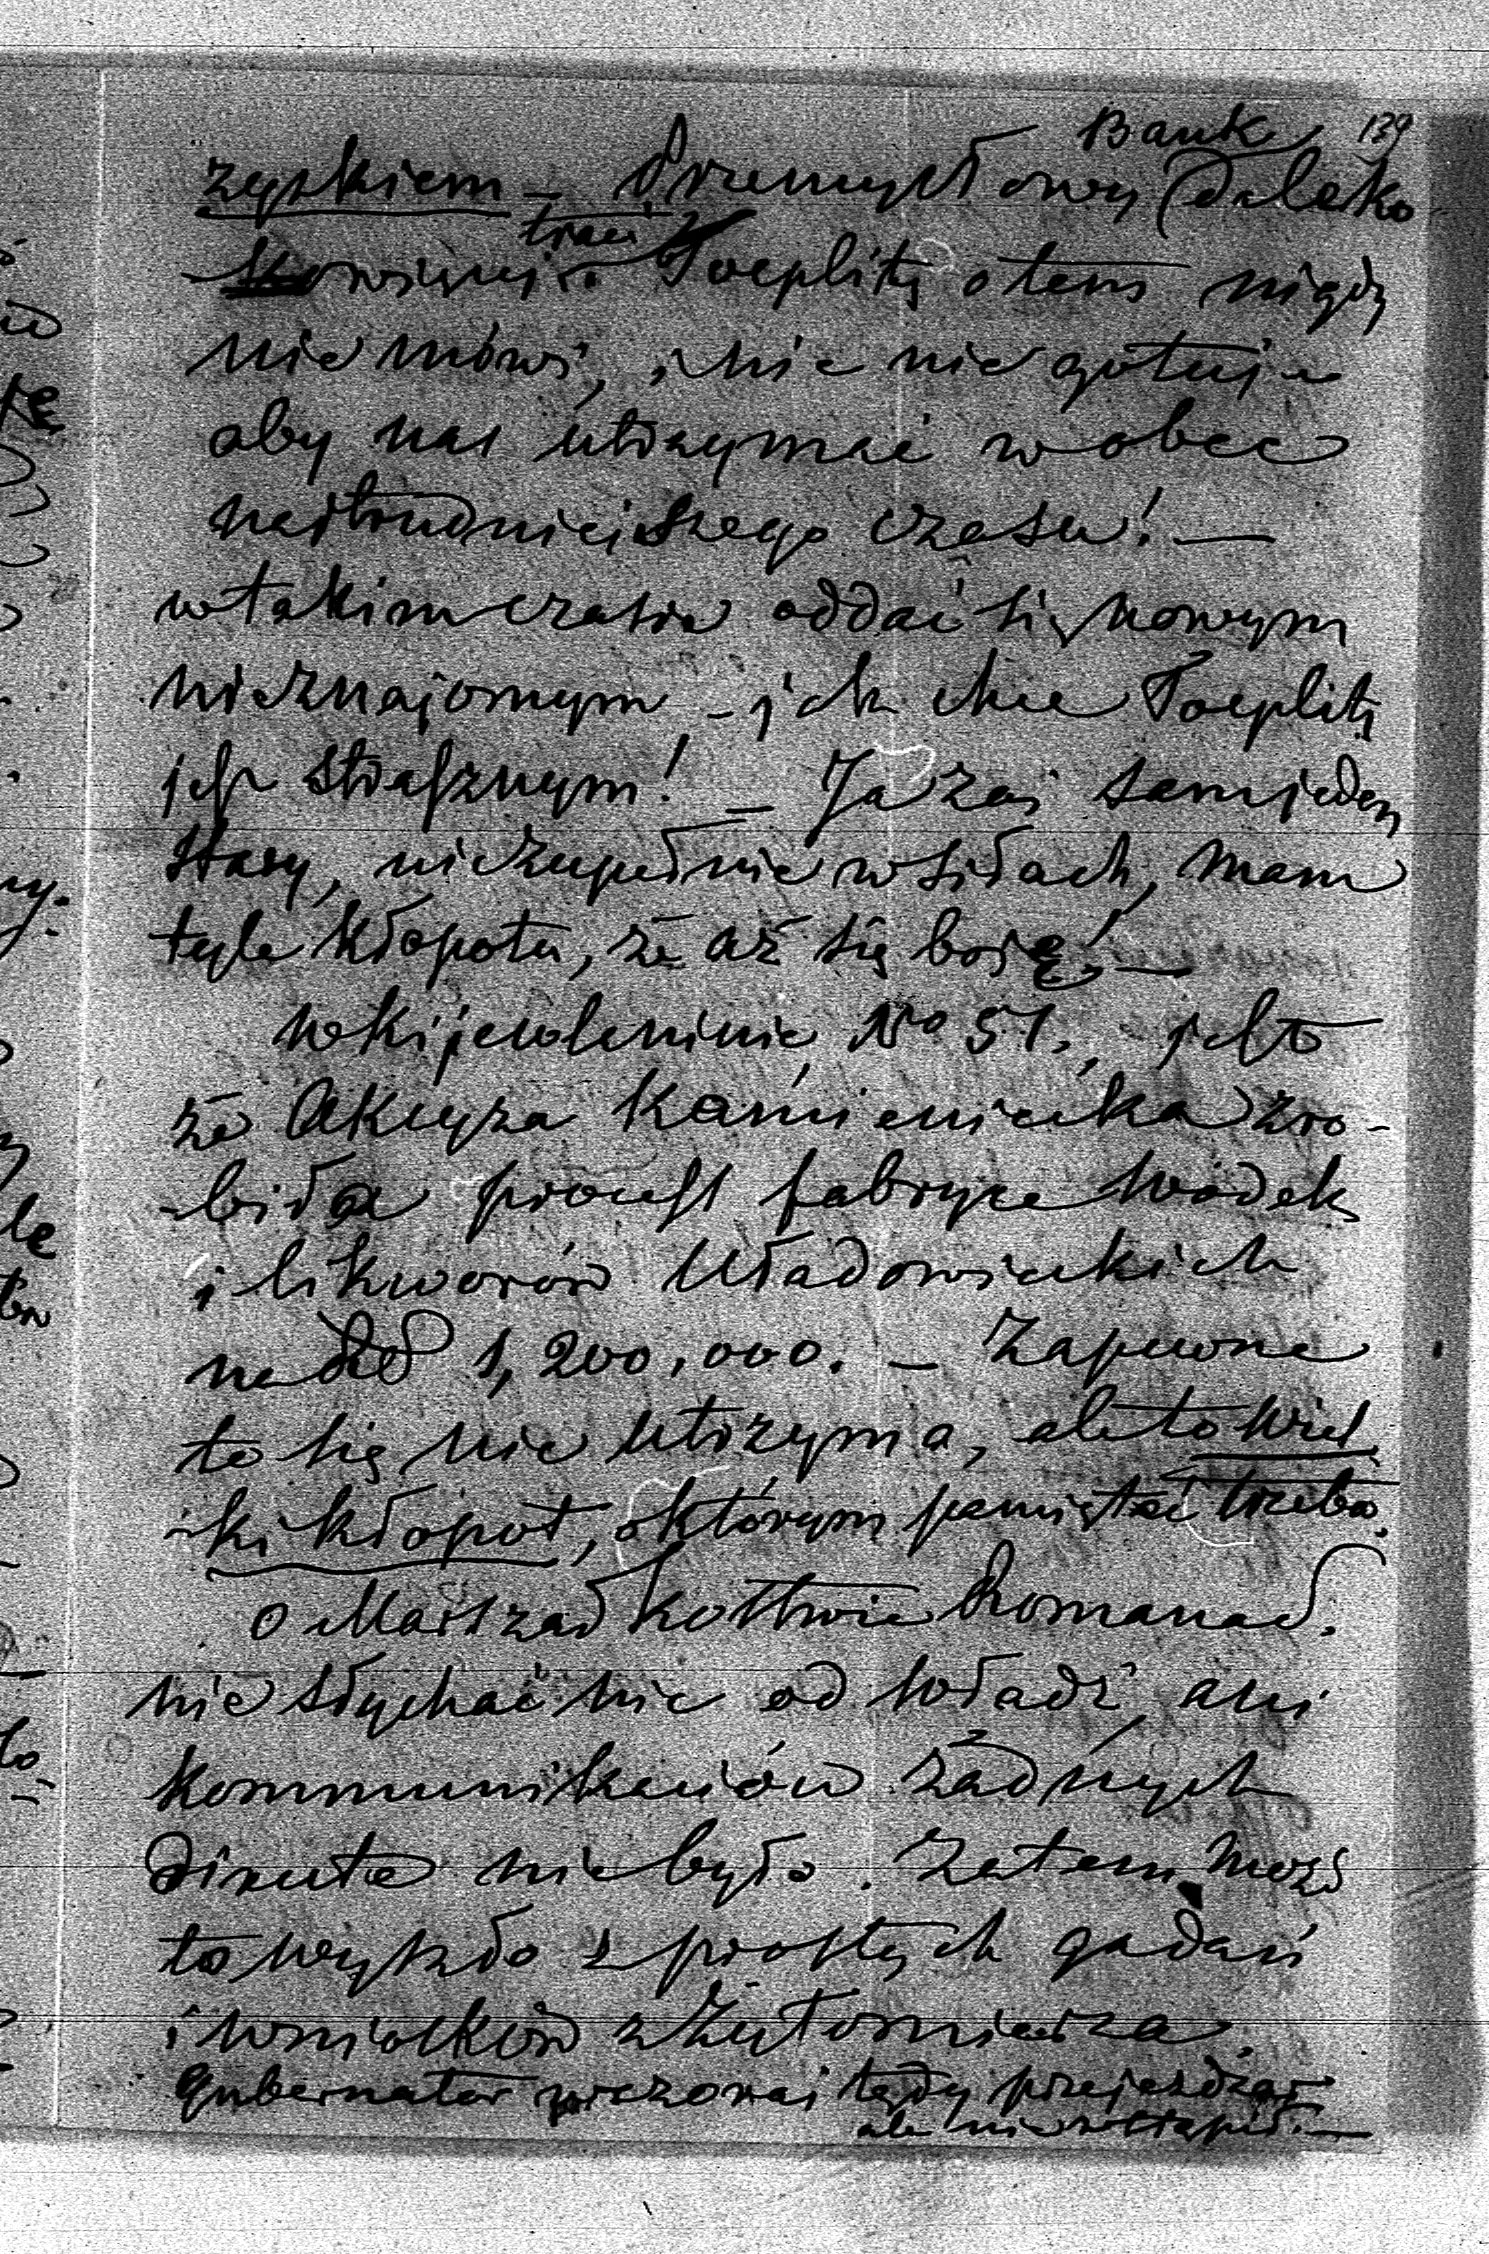 Bank 139
zyskiem – Przemysłowy daleko
traci
więcej a Toeplitz o tem nigdy
nie mówi, i nic nie gotuje
aby nas utrzymać wobec
najtrudniejszego czasu! —
w takim czasie oddać się nowym
nieznajomym – jak chce Toeplitz
jest strasznym! – Ja zaś sam jeden
stary, niezupełnie w siłach, mam
tyle kłopotu, że aż się boję! —
w kijewlaninie No 51., jest to
że Akcyza Kamieniecka zro-
-biła process fabryce wódek
i likworów Uładowieckich
nadd 1,200,000. – Zapewne
to się nie utrzyma, ale to wiel
-ki kłopot, o którym pamiętać trzeba.
o Marszałkostwie Romana S.
nie słychać nic od władz, ani
kommunikaciów żadnych
dirute nie było. Zatem może
to wyszło z prostych gadań
i wniosków z Żytomierza.
Gubernator wczoraj tędy przejeżdżał
ale nie wstąpił. —